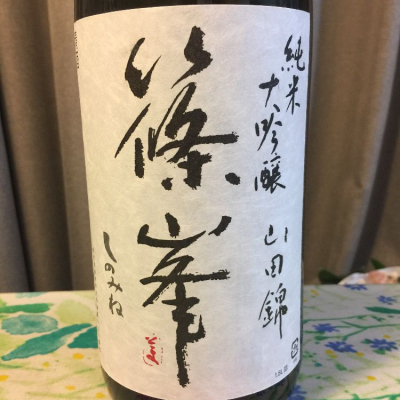 純米
大吟醸
山田錦
篠峯
しのみね